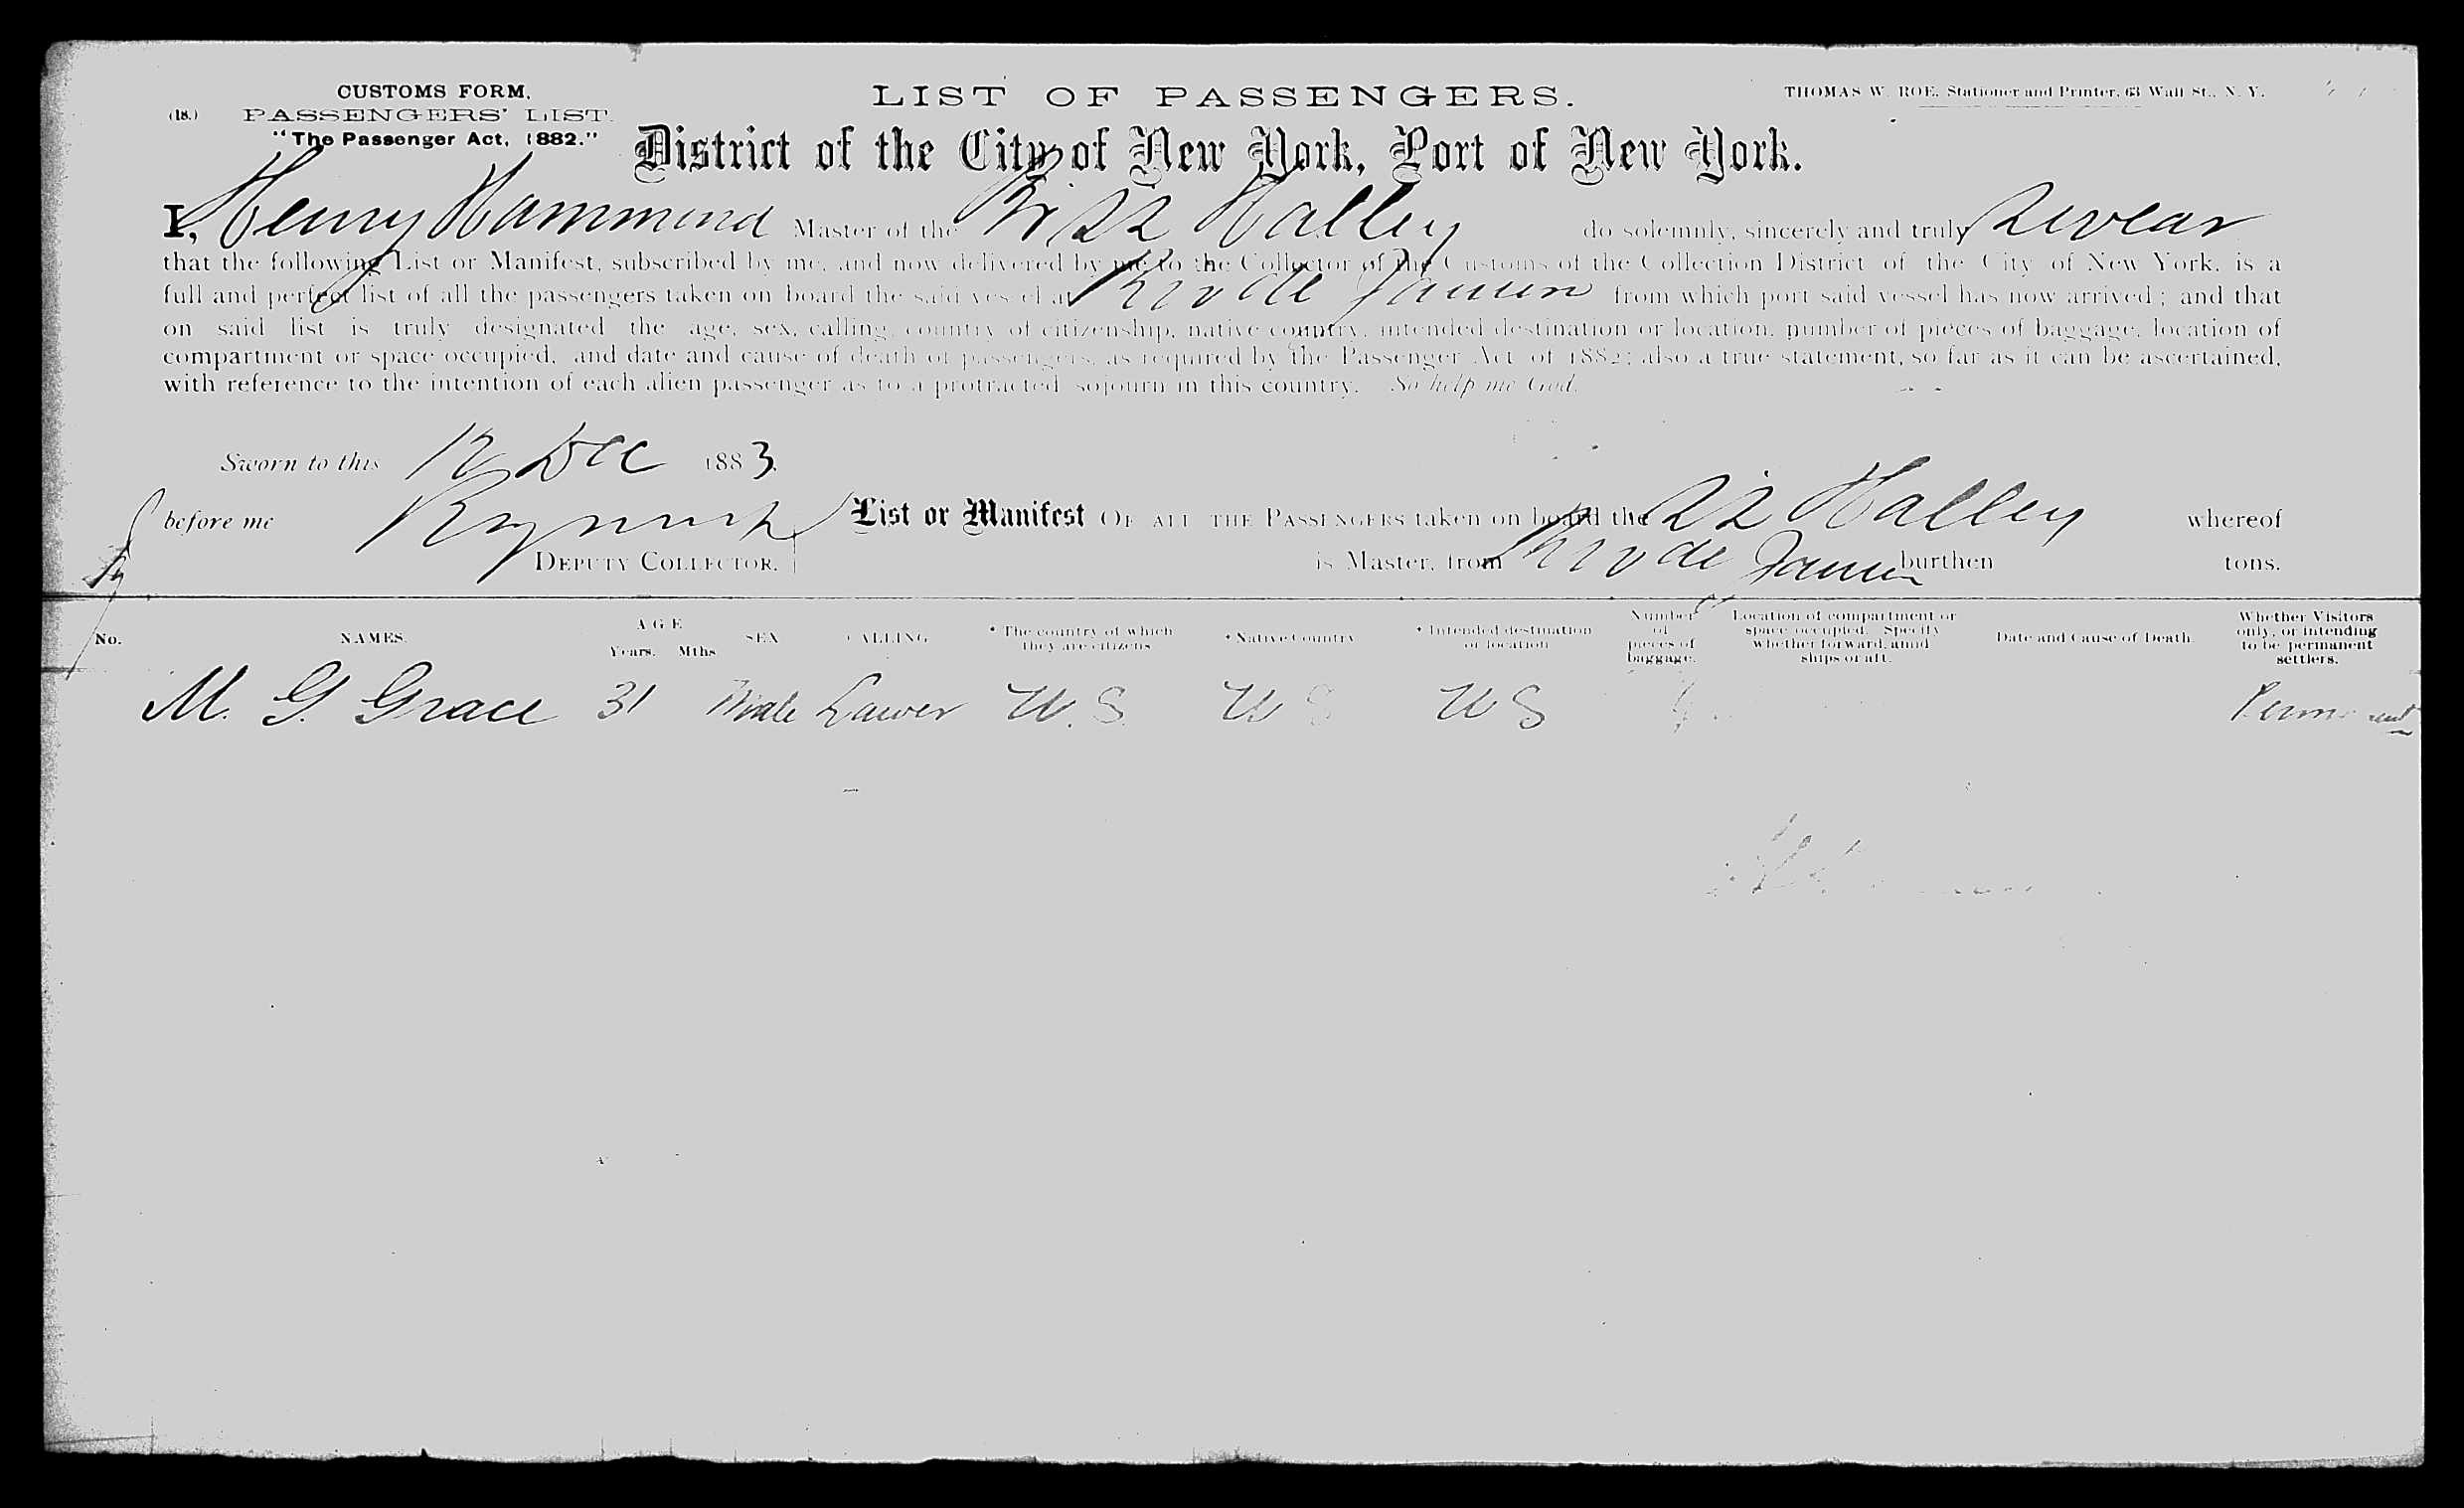 CUSTOMS FORM.
(18.) PASSENGERS' LIST.
"The Passenger Act, 1882."
LIST OF PASSENGERS.
THOMAS W. ROE, Stationer and Printer, 63 Wall St., N. Y.
District of the City of New York, Port of New York.
I, Henry Hammond Master of the Br SS Halley do solemnly, sincerely and truly swear
that the following List or Manifest, subscribed by me, and now delivered by me to the Collector of the Customs of the Collection District of the City of New York, is a
full and perfect list of all the passengers taken on board the said vessel at Rio de Janeiro from which port said vessel has now arrived; and that
on said list is truly designated the age, sex, calling, country of citizenship, native country, intended destination or location, number of pieces of baggage, location of
compartment or space occupied, and date and cause of death of passengers, as required by the Passenger Act of 1882; also a true statement, so far as it can be ascertained,
with reference to the intention of each alien passenger as to a protracted sojourn in this country. So help me God.
Sworn to this 12 Dec 1883.
before me
DEPUTY COLLECTOR.
List or Manifest OF ALL THE PASSENGERS taken on board the Br SS Halley whereof
is Master, from Rio de Janeiro burthen tons.
No. NAMES. AGE Years. Mths SEX CALLING * The country of which they are citizens * Native Country * Intended destination or location Number of pieces of baggage. Location of compartment or space occupied. Specify whether forward, amidships or aft. Date and Cause of Death. Whether Visitors only, or intending to be permanent settlers.
M. G. Grace 31 Male Lawer U. S. U S U S Permanent